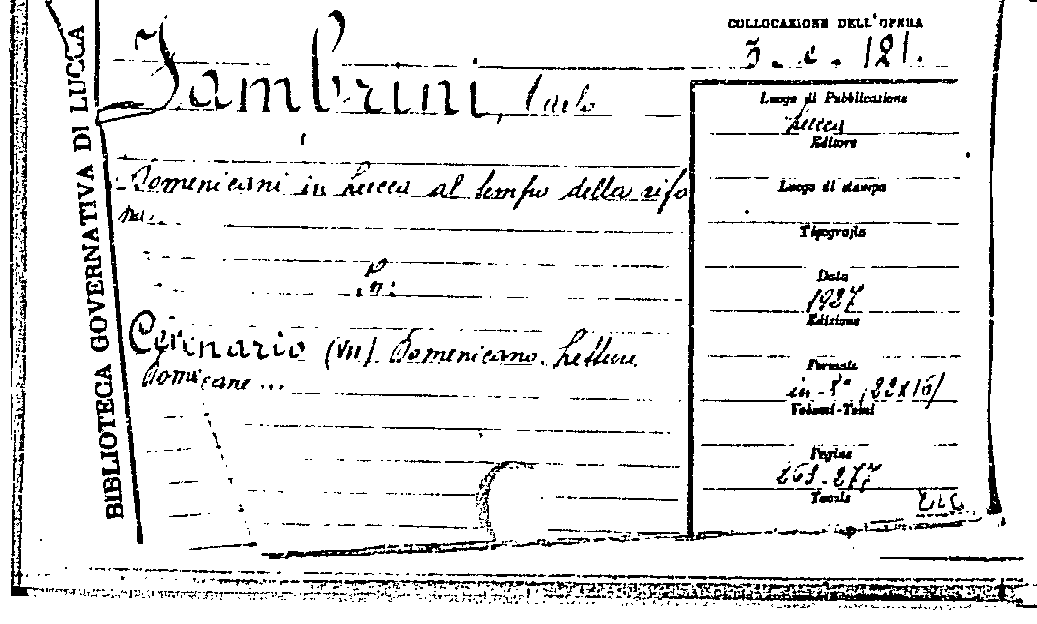 BIBLIOTECA GOVERNATIVA DI LUCCA
COLLOCAZIONE DELL'OPERA
3. c. 121.
Jambrini, Carlo
Domenicani in Lucca al tempo della rifo
ma...
In:
Centenario (VII) Domenicano. Letture
Domenicane ...
Luogo di Pubblicazione
Lucca
Editore
Luogo di stampa
Tipografia
Data
1927
Edizione
Formato
in-8° (22x16)
Volumi-Tomi
Pagine
-277
Tavole